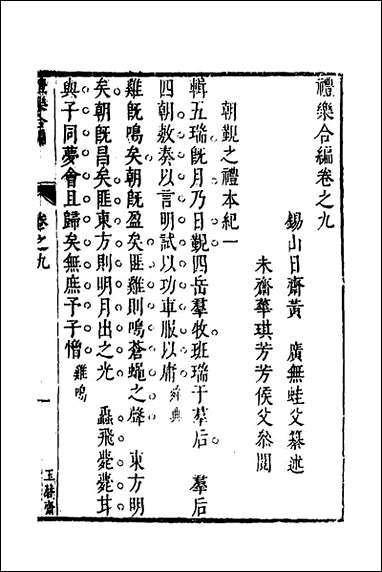 禮樂合編卷之九
錫山日齋黃 廣無蛙父纂述
未齋華琪芳芳侯父叅閱
朝覲之禮本紀一
輯五瑞旣月乃日覲四岳羣牧班瑞于羣后 羣后
四朝敷奏以言明試以功車服以庸 舜典
雞旣鳴矣朝旣盈矣匪雞則鳴蒼蠅之聲 東方明
矣朝旣昌矣匪東方則明月出之光 蟲飛薨薨甘
與子同夢會且歸矣無庶予子憎 雞鳴
禮樂合編 卷之九 一 玉磬齋